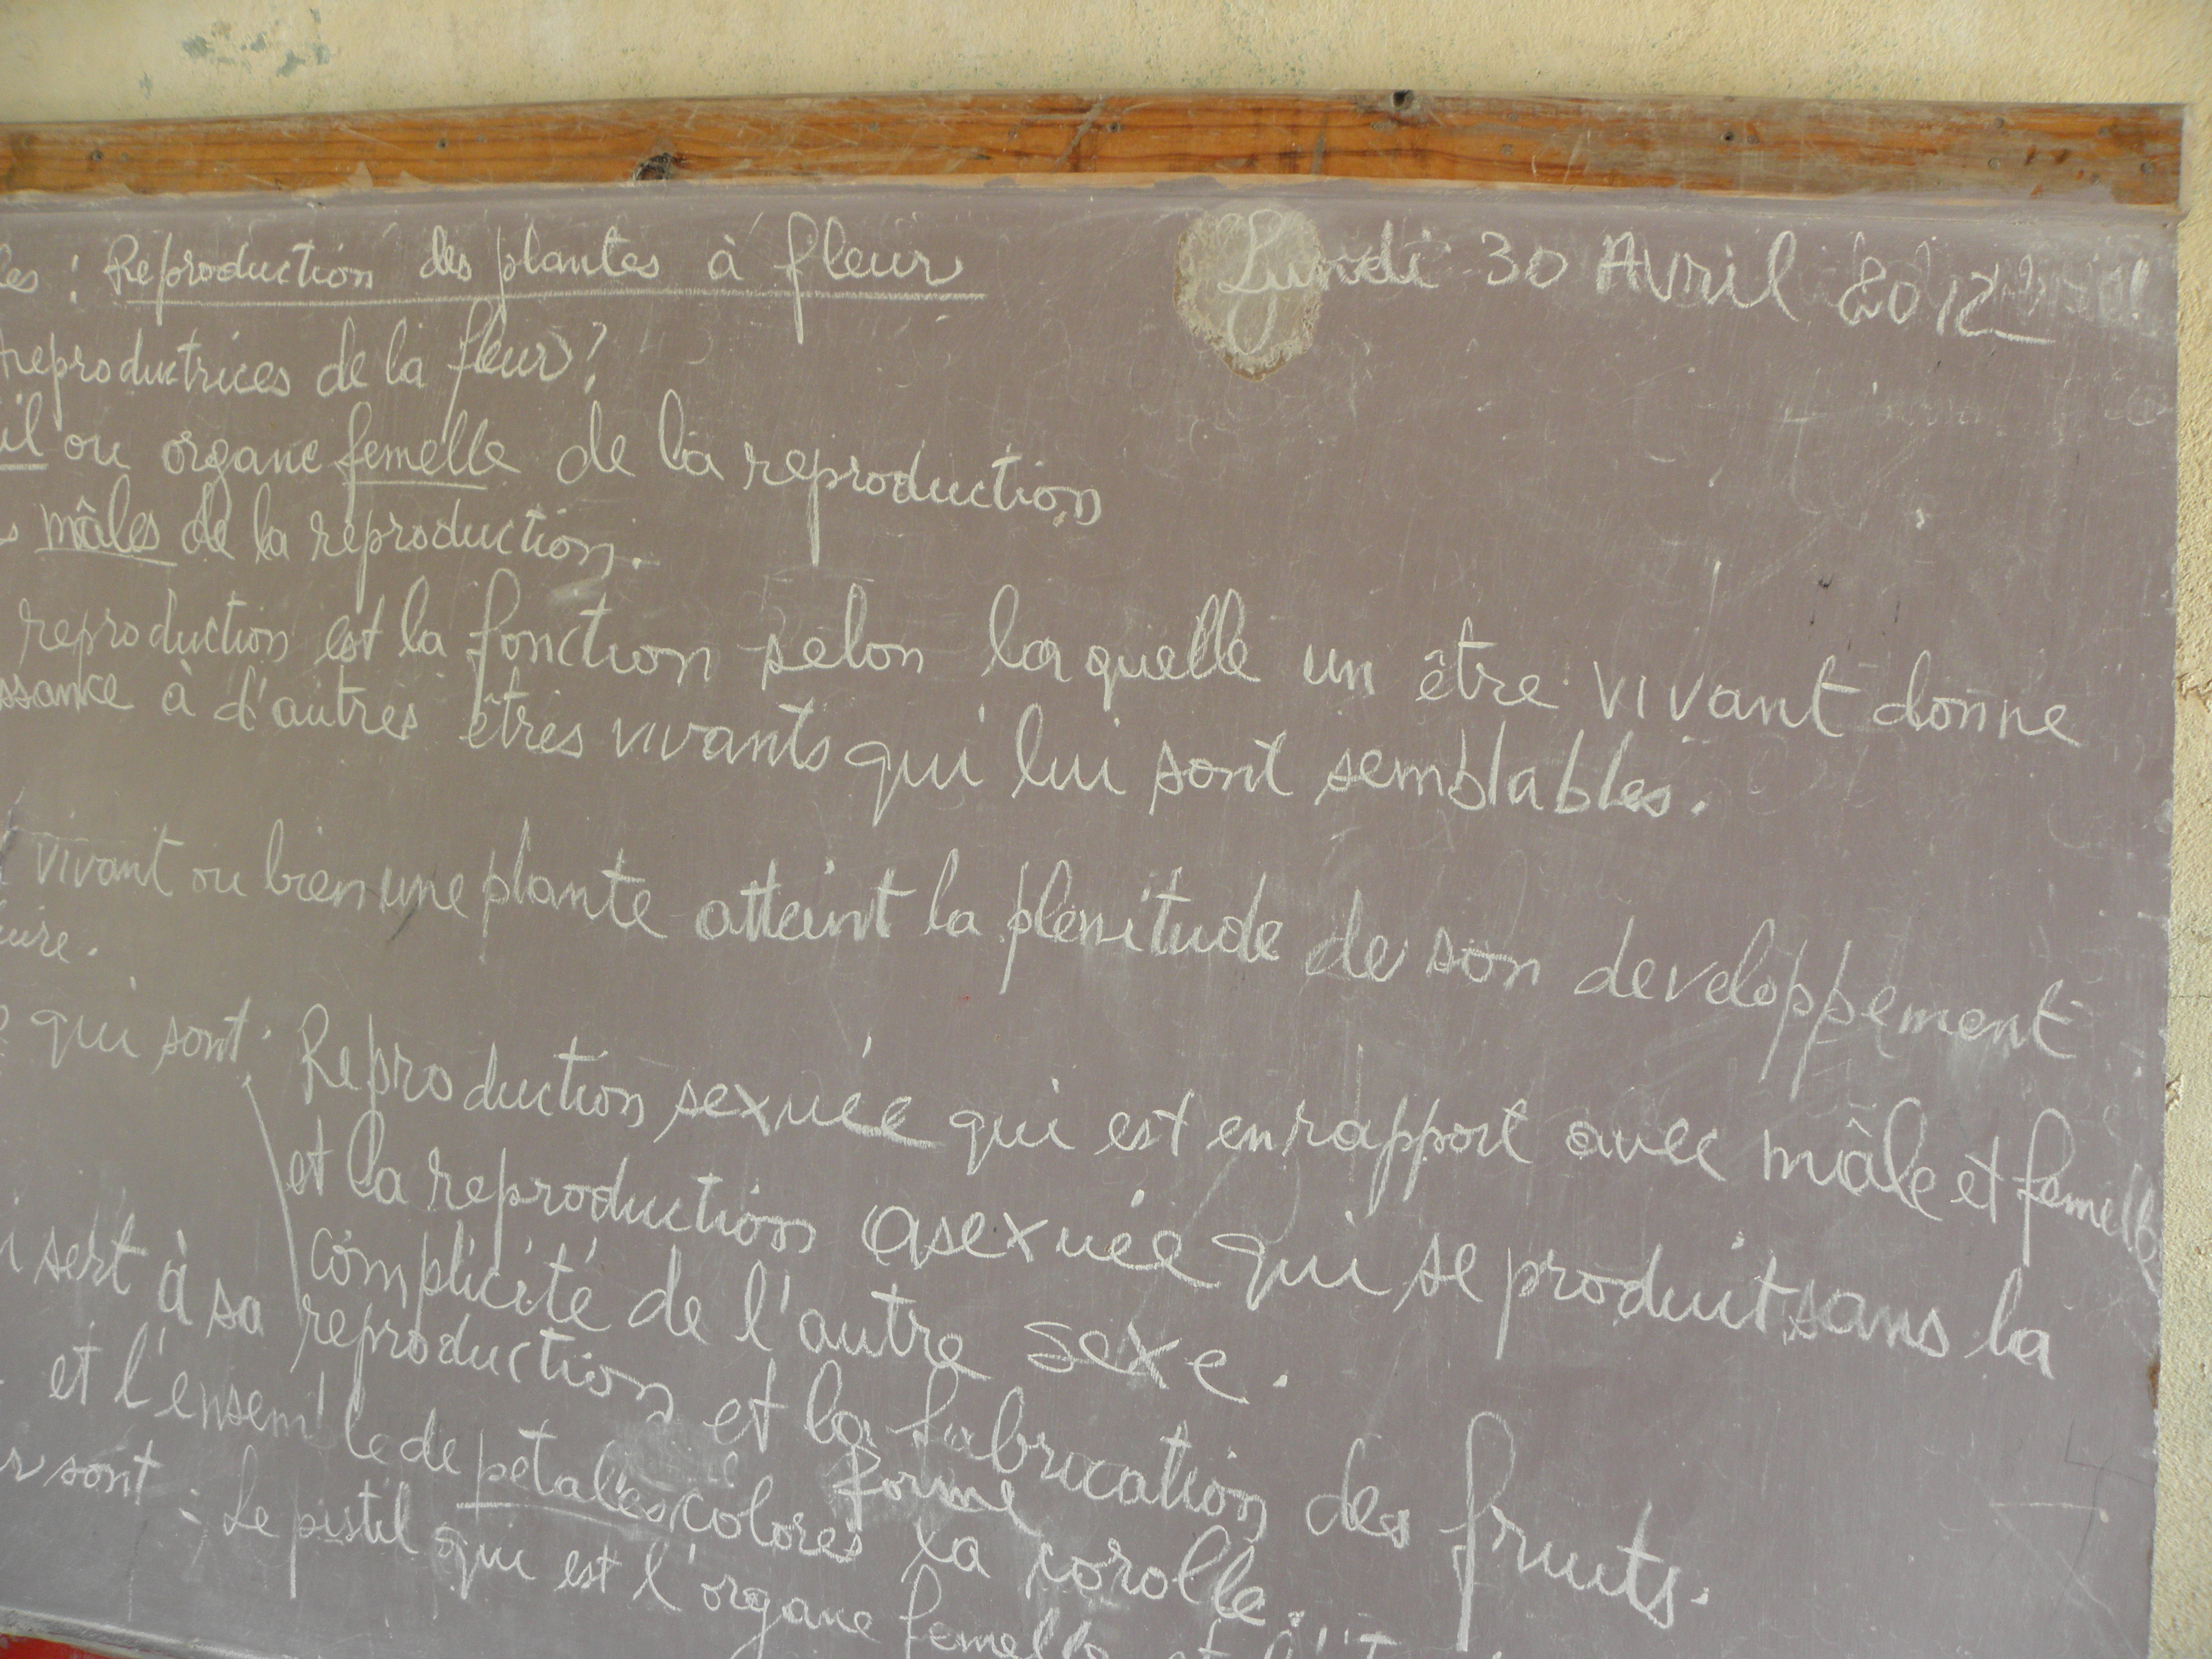 les : Reproduction des plantes à fleur
Lundi 30 Avril 2012
reproductrices de la fleur?
il ou organe femelle de la reproduction
s mâles de la reproduction.
reproduction est la fonction selon laquelle un être vivant donne
ssance à d'autres êtres vivants qui lui sont semblables.
vivant ou bien une plante atteint la plenitude de son developpement
qui sont: Reproduction sexuée qui est en rapport avec mâle et femelle
et la reproduction asexuée qui se produit sans la
complicité de l'autre sexe.
i sert à sa reproduction et la fabrication des fruits.
et l'ensemble de pétales colorés forme la corolle.
r sont : Le pistil qui est l'organe femelle et